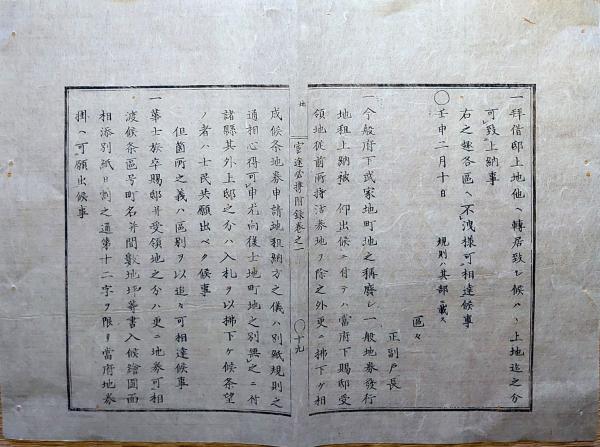 一拝借邸上地他ヘ轉居致シ候ハヽ上地迄之分
可致上納事
右之趣各區ヘ不洩様可相達候事
〇壬申二月十日 規則ハ其部ニ載ス
區々
正副戸長
一今般府下武家地町地之称廃シ一般地券發行
地租上納被 仰出候ニ付テハ當府下賜邸受
領地從前所持沽券地ヲ除之外更ニ拂下ケ相
地
官途必携附録巻之一
〇十九
成候条地券申請地租納方之儀ハ別紙規則之
通相心得可申尤向後士地町地之別無之ニ付
諸縣其外上邸之分ハ入札ヲ以拂下ケ候条望
ノ者ハ士民共願出ベク候事
但箇所之義ハ區別ヲ以追々可相達候事
一華士族卒賜邸并受領地之分ハ更ニ地券可相
渡候条區号町名并間數地坪等書入候繪圖面
相添別紙日割之通第十二字ヲ限リ當府地券
掛ヘ可願出候事